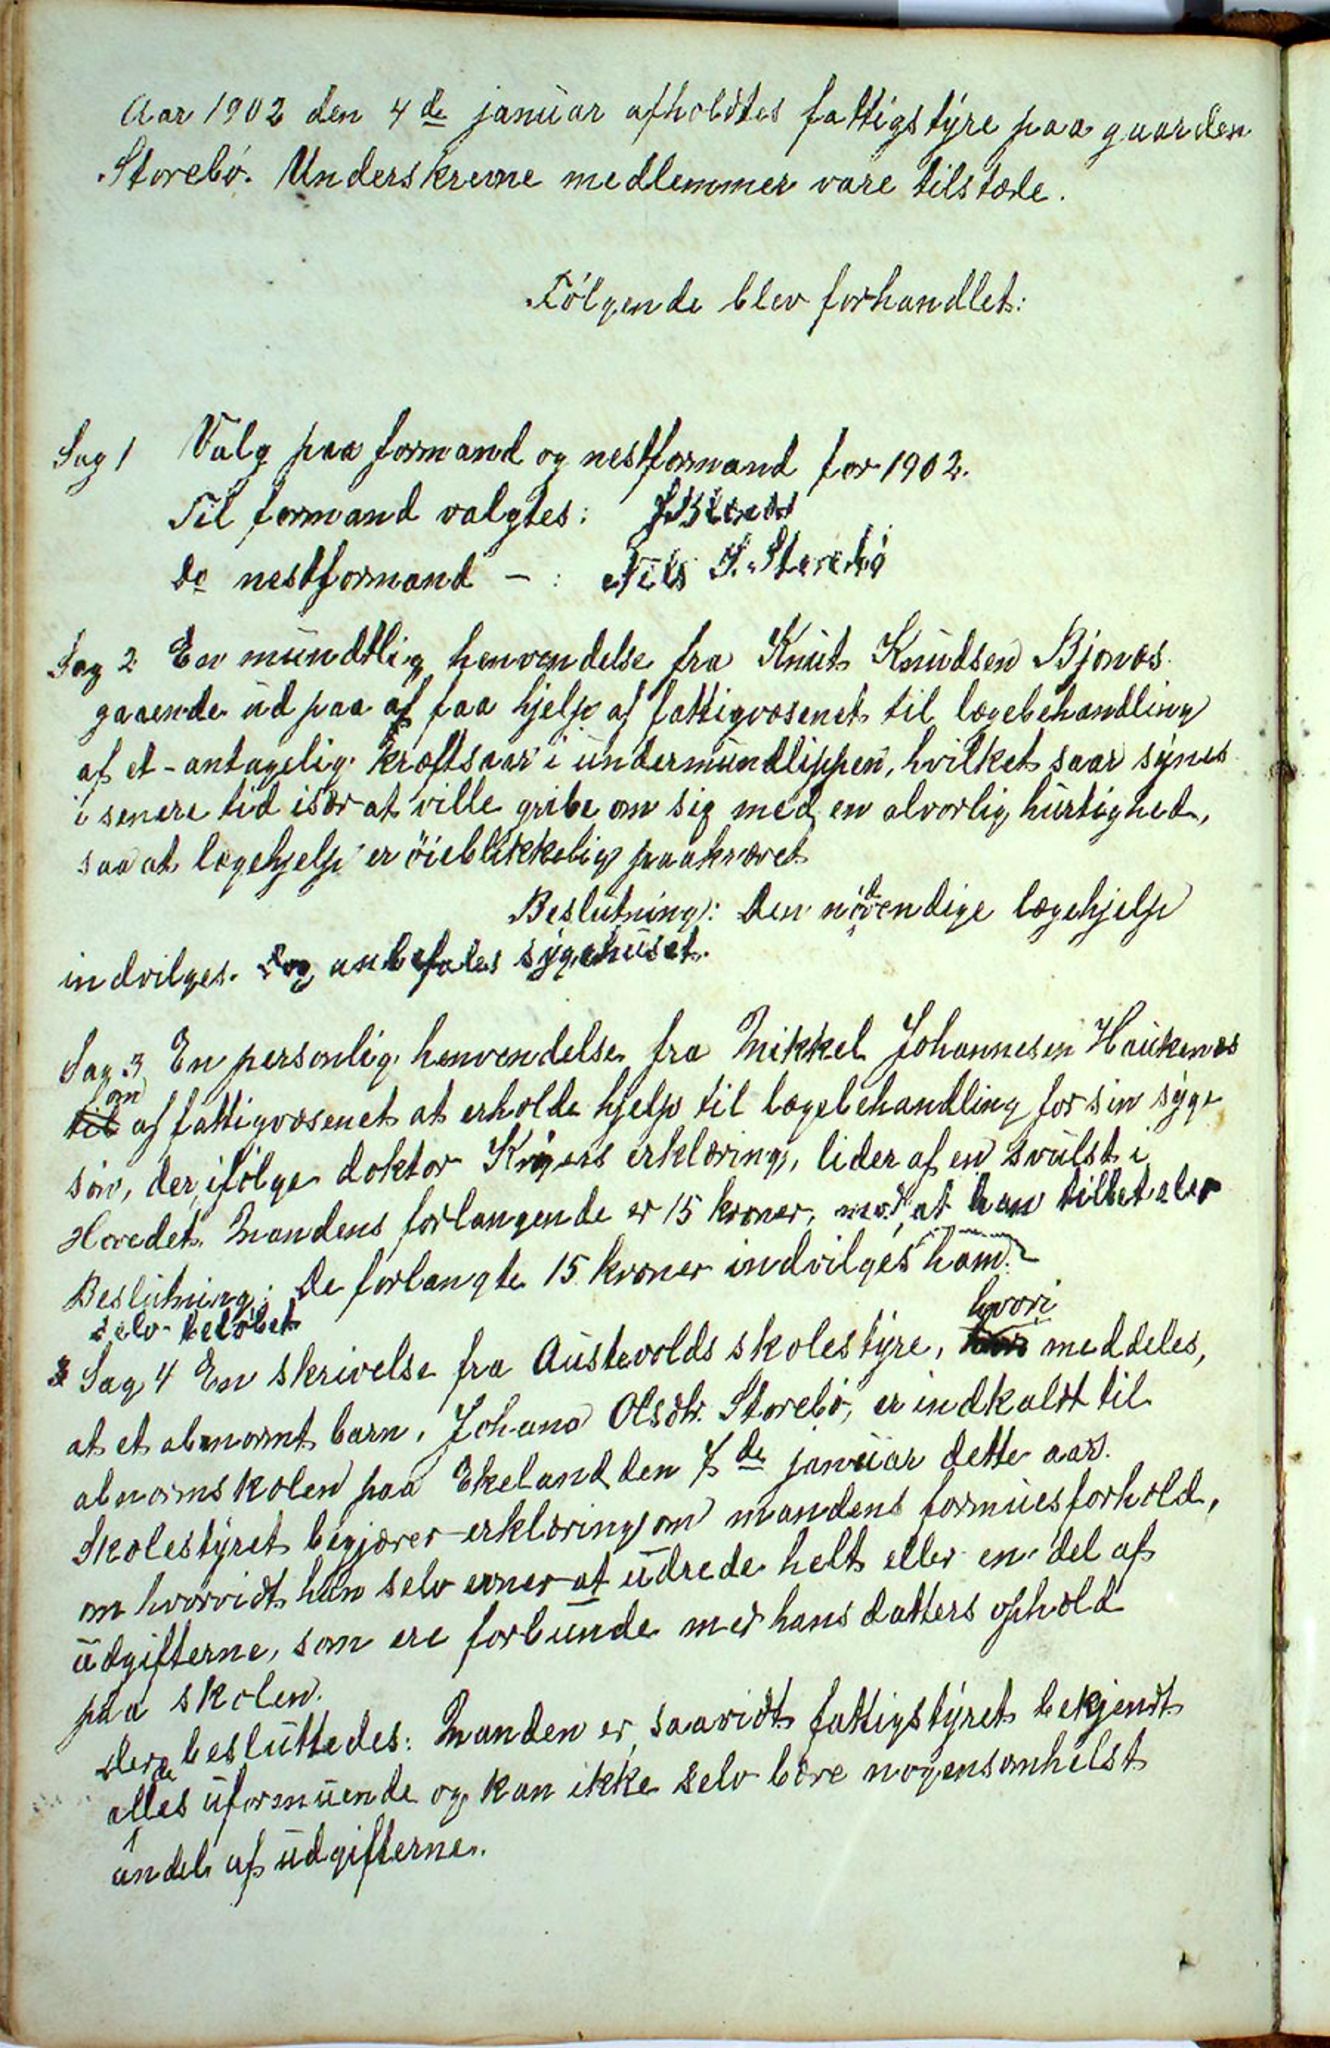 Aar 1902 den 4de januar afholdtes fattigstyre paa gaarden
Storebø. Underskrevne medlemmer vare tilstede.
Følgende blev forhandlet:
Sag 1 Valg paa formand og nestformand for 1902.
Til formand valgtes:
Do nestformand – : Nils J. Storebø
Sag 2 En mundtlig henvendelse fra Knut Knudsen Bjønæs
gaaende ud paa at faa hjelp af fattigvæsenet til lægebehandling
af et – antagelig kræftsaar i undermundlippen, hvilket saar synes
i senere tid især at ville gribe om sig med en alvorlig hurtighed,
saa at lægehjelp er öieblikkelig paakrævet
Beslutning: Den nödvendige lægehjelp
indvilges. Dog anbefales sygehuset.
Sag 3 En personlig henvendelse fra Mikkel Johannesen Haukenæs
til om af fattigvæsenet at erholde hjelp til lægebehandling for sin syge
søn, der, ifølge doktor Krøyers erklæring, lider af en svulst i
Hovedet. Mandens forlangende er 15 kroner, mod, at han tilbetaler
Beslutning: De forlangte 15 kroner indvilges ham.
selv beløbet
Sag 4 En skrivelse fra Austevolds skolestyre, hvori meddeles,
at et abnormt barn, Johana Olsdtr. Storebø, er indkaldt til
abnormskolen paa Ekeland den 7de januar dette aar.
Skolestyret begjærer erklæring om mandens formuesforhold,
om hvorvidt han selv evner at udrede helt eller en del af
udgifterne, som ere forbunde med hans datters ophold
paa skolen.
Der besluttedes: Manden er, saavidt fattigstyret bekjendt
aldeles uformuende og kan ikke selv bære nogensomhelst
andel af udgifterne.